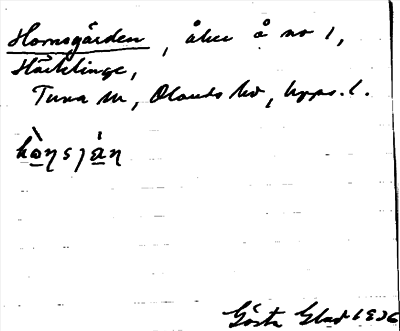 Hornsgården, åker å no 1,
Häcklinge,
Tuna sn, Olands hd, Upps. l.
hò̱ŋsjá̱ŋ
Gösta Glad 1926